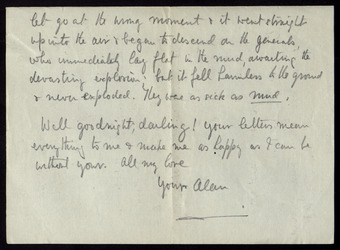 let go at the wrong moment & it went straight
up into the air & began to descend on the generals,
who immediately lay flat in the mud, awaiting the
devasting explosion but it fell harmless to the ground
& never exploded. They was as sick as mud.
Well goodnight, darling! Your letters mean
everything to me & make me as happy as I can be
without you. All my love
Yours Alan